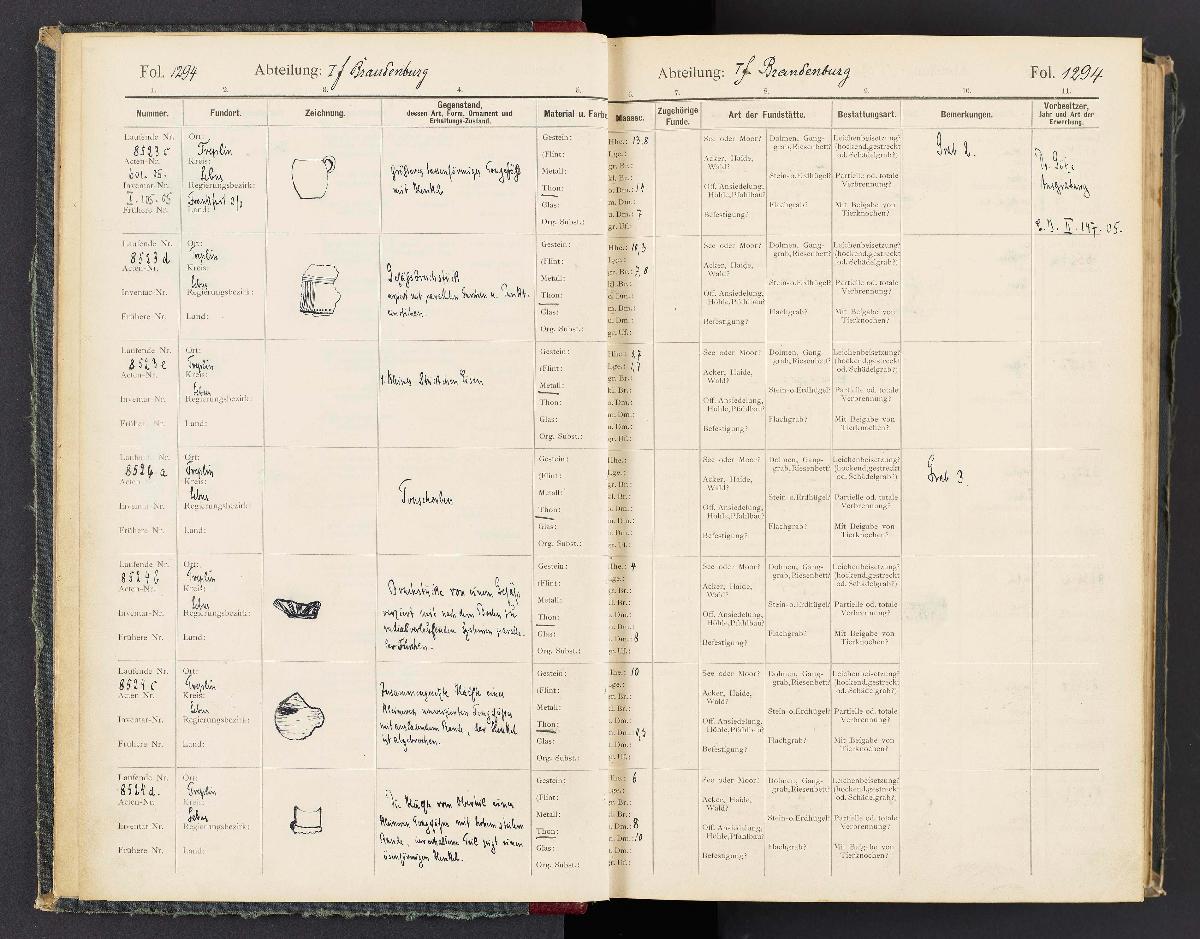 Fol. 1294
Abteilung: If Brandenburg
Abteilung: If Brandenburg
Fol. 1294
1. 2. 3. 4. 5. 6. 7. 8. 9. 10. 11.
Nummer.
Fundort.
Zeichnung.
Gegenstand,
dessen Art, Form, Ornament und
Erhaltungs-Zustand.
Material u. Farbe
Maasse.
Zugehörige
Funde.
Art der Fundstätte.
Bestattungsart.
Bemerkungen.
Vorbesitzer,
Jahr und Art der
Erwerbung.
Laufende Nr.
8523 c
Acten-Nr.
601. 05.
Inventar-Nr.
I. 105. 05
Frühere Nr.
Ort:
Treplin
Kreis:
Lebus
Regierungsbezirk:
Frankfurt a/O
Land:
Größeres tassenförmiges Tongefäß
mit Henkel
Gestein:
(Flint:
Metall:
Thon:
Glas:
Org. Subst.:
Hhe.: 13,8
See oder Moor?
Acker, Haide,
Wald?
Off. Ansiedelung,
Höhle, Pfahlbau?
Befestigung?
Dolmen, Gang-
grab, Riesenbett?
Stein- o. Erdhügel?
Flachgrab?
Leichenbeisetzung?
(hockend, gestreckt
od. Schädelgrab?)
Partielle od. totale
Verbrennung?
Mit Beigabe von
Tierknochen?
Grab 2.
Dr. Götze
Ausgrabung
E. B. II. 147. 05.
Laufende Nr.
8523 d
Acten-Nr.
Inventar-Nr.
Frühere Nr.
Ort:
Treplin
Kreis:
Lebus
Regierungsbezirk:
Land:
Gefäßbruchstück
verziert mit parallelen Furchen u. Punkt-
einstichen.
Gestein:
(Flint:
Metall:
Thon:
Glas:
Org. Subst.:
gr. Br.: 7,8
See oder Moor?
Acker, Haide,
Wald?
Off. Ansiedelung,
Höhle, Pfahlbau?
Befestigung?
Dolmen, Gang-
grab, Riesenbett?
Stein- o. Erdhügel?
Flachgrab?
Leichenbeisetzung?
(hockend, gestreckt
od. Schädelgrab?)
Partielle od. totale
Verbrennung?
Mit Beigabe von
Tierknochen?
Laufende Nr.
8523 e
Acten-Nr.
Inventar-Nr.
Frühere Nr.
Ort:
Treplin
Kreis:
Lebus
Regierungsbezirk:
Land:
1 kleines Stückchen Eisen
Gestein:
(Flint:
Metall:
Thon:
Glas:
Org. Subst.:
See oder Moor?
Acker, Haide,
Wald?
Off. Ansiedelung,
Höhle, Pfahlbau?
Befestigung?
Dolmen, Gang-
grab, Riesenbett?
Stein- o. Erdhügel?
Flachgrab?
Leichenbeisetzung?
(hockend, gestreckt
od. Schädelgrab?)
Partielle od. totale
Verbrennung?
Mit Beigabe von
Tierknochen?
Laufende Nr.
8524 a
Acten
Inventar-Nr.
Frühere Nr.
Ort:
Treplin
Kreis:
Lebus
Regierungsbezirk:
Land:
Tonscherben
Gestein:
(Flint:
Metall:
Thon:
Glas:
Org. Subst.:
See oder Moor?
Acker, Haide,
Wald?
Off. Ansiedelung,
Höhle, Pfahlbau?
Befestigung?
Dolmen, Gang-
grab, Riesenbett?
Stein- o. Erdhügel?
Flachgrab?
Leichenbeisetzung?
(hockend, gestreckt
od. Schädelgrab?)
Partielle od. totale
Verbrennung?
Mit Beigabe von
Tierknochen?
Grab 3.
Laufende Nr.
8524 b
Acten-Nr.
Inventar-Nr.
Frühere Nr.
Ort:
Treplin
Kreis:
Lebus
Regierungsbezirk:
Land:
Bruchstücke von einem Gefäß
verziert mit nach dem Boden zu
radialverlaufenden Systemen paralle-
ler Furchen.
Gestein:
(Flint:
Metall:
Thon:
Glas:
Org. Subst.:
Hhe.: 4
Dm.: 8
See oder Moor?
Acker, Haide,
Wald?
Off. Ansiedelung,
Höhle, Pfahlbau?
Befestigung?
Dolmen, Gang-
grab, Riesenbett?
Stein- o. Erdhügel?
Flachgrab?
Leichenbeisetzung?
(hockend, gestreckt
od. Schädelgrab?)
Partielle od. totale
Verbrennung?
Mit Beigabe von
Tierknochen?
Laufende Nr.
8524 c
Acten-Nr.
Inventar-Nr.
Frühere Nr.
Ort:
Treplin
Kreis:
Lebus
Regierungsbezirk:
Land:
Zusammengesetzte Hälfte eines
kleineren unverzierten Tongefäßes
mit ausladendem Rande, der Henkel
ist abgebrochen.
Gestein:
(Flint:
Metall:
Thon:
Glas:
Org. Subst.:
Hhe.: 10
See oder Moor?
Acker, Haide,
Wald?
Off. Ansiedelung,
Höhle, Pfahlbau?
Befestigung?
Dolmen, Gang-
grab, Riesenbett?
Stein- o. Erdhügel?
Flachgrab?
Leichenbeisetzung?
(hockend, gestreckt
od. Schädelgrab?)
Partielle od. totale
Verbrennung?
Mit Beigabe von
Tierknochen?
Laufende Nr.
8524 d.
Acten-Nr.
Inventar-Nr.
Frühere Nr.
Ort:
Treplin
Kreis:
Lebus
Regierungsbezirk:
Land:
Die Hälfte vom Oberteil eines
kleineren Tongefäßes mit hohem steilem
Rande, der erhaltene Teil zeigt einen
ösenförmigen Henkel.
Gestein:
(Flint:
Metall:
Thon:
Glas:
Org. Subst.:
Hhe.: 6
Dm.: 8
Dm.: 10
See oder Moor?
Acker, Haide,
Wald?
Off. Ansiedelung,
Höhle, Pfahlbau?
Befestigung?
Dolmen, Gang-
grab, Riesenbett?
Stein- o. Erdhügel?
Flachgrab?
Leichenbeisetzung?
(hockend, gestreckt
od. Schädelgrab?)
Partielle od. totale
Verbrennung?
Mit Beigabe von
Tierknochen?